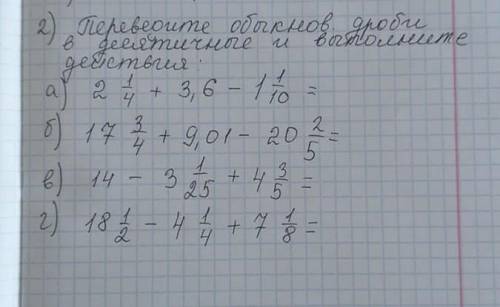 2) Переведите обыкнов. дроби
в десятичные и выполните
действия:
а) 2 1/4 + 3,6 - 1 1/10 =
б) 17 3/4 + 9,01 - 20 2/5 =
в) 14 - 3 1/25 + 4 3/5 =
г) 18 1/2 - 4 1/4 + 7 1/8 =